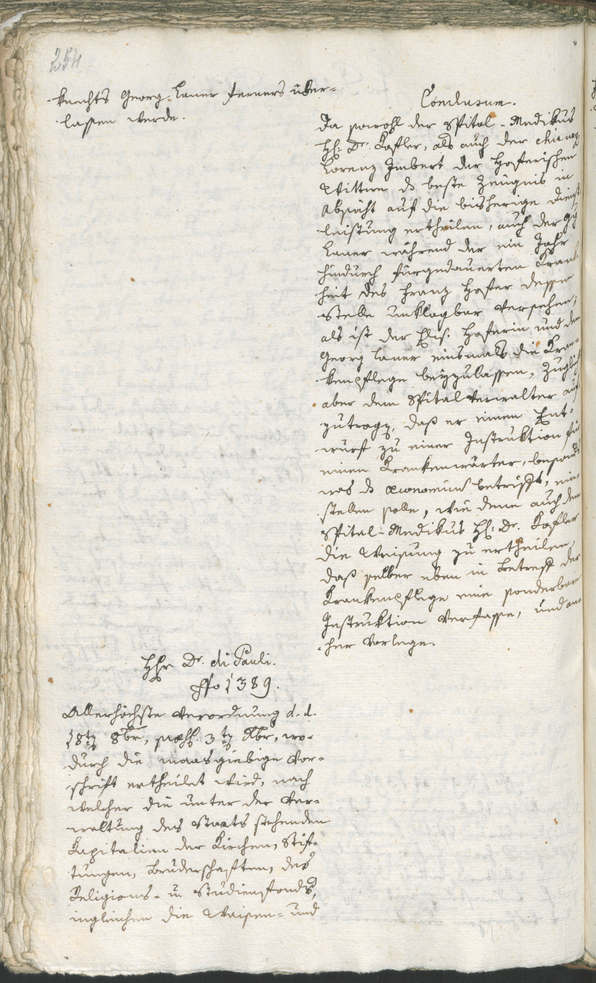 254
knechts Georg Lauer ferners über-
lassen werde.
Conclusum.
Da sowohl der Spital-Medikus
H: Dr. Kofler, als auch der
Lorenz Imbert der Hoferischen
Wittwe das beste Zeugnis in
Absicht auf die bisherige Dienst
leistung ertheilen, auch der
Lauer während der ein Jahr
hindurch fürgedauerten Krank
heit des Franz Hofer dessen
Stelle unklagbar versehen,
als ist der Elis. Hoferin und dem
Georg Lauer einsmals die Kran-
kenpflege beyzulassen, zugleich
aber dem Spitalverwalter auf
zutragen, daß er einen Ent-
wurf zu einer Instruktion für
einen Krankenwärter, besonders
was das oeconomicum betrifft, ein
stellen solle, wie denn auch dem
Spital-Medikus H: Dr. Kofler
die Weisung zu ertheilen,
daß selber eben in Betreff der
Krankenpflege eine sonderbare
Instruktion verfasse, und an-
her vorlege.
Hr. Dr. di Pauli.
Nro 1389.
Allerhöchste Verordnung d. d.
18ten 8br, 3ten Xbr, wo-
durch die maasgiebige Vor-
schrift ertheilet wird, nach
welcher die unter der Ver-
waltung des Staats stehenden
Kapitalien der Kirchen, Stif-
tungen, Bruderschaften, des
Religions- u. Studienfonds,
ingleichen die Waisen- und